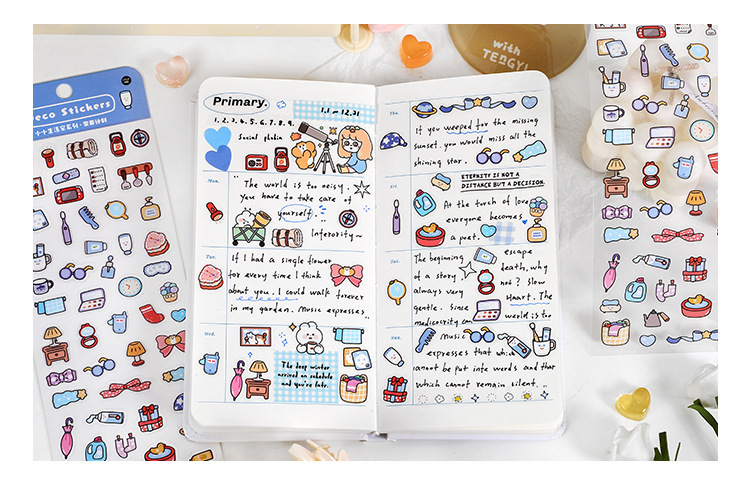 with
TENGYI
Deco Stickers
Primary.
1.1 — 12.31
1. 2. 3. 4. 5. 6. 7. 8. 9.
Social phobia
Mon.
"The world is too noisy.
You have to take care of
yourself.
Inferority~
Tue.
If I had a single flower
for every time I think
about you. I could walk forever
in my garden. Music expresses..
Wed.
The deep winter
arrived on schedule
and you're late.
Thu.
If you weeped for the missing
sunset. you would miss all the
shining star.
Fri.
ETERNITY IS NOT A
DISTANCE BUT A DECISION.
At the torch of love
everyone becomes
a poet.
Sat.
The beginning escape
of a story. death, why
always very not? Slow
gentle. Since Heart. The
mediocrity can world is too
Sun.
Music
expresses that which
cannot be put into words and that
which cannot remain silent.